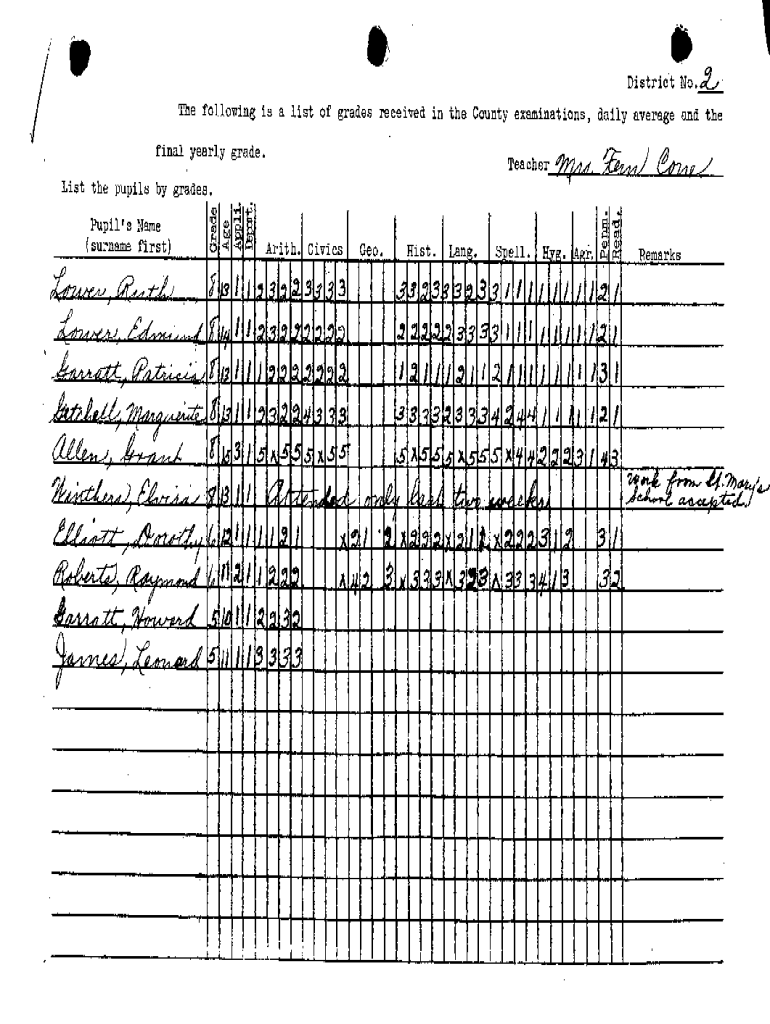 District No. 2
The following is a list of grades received in the County examinations, daily average and the
final yearly grade.
Teacher Mrs. Fern Cone
List the pupils by grades.
Pupil's Name (surname first) Grade Age Appli. Deport. Arith. Civics Geo. Hist. Lang. Spell. Hyg. Agr. Penm. Read. Remarks
Lower, Ruth 8 13 1 1 2 3 2 2 3 3 3 3 3 3 2 3 3 3 2 3 3 1 1 1 1 1 1 1 2 1
Lower, Edmund 8 14 1 1 2 3 2 2 2 2 2 2 2 2 2 2 2 3 3 3 3 1 1 1 1 1 1 1 2 1
Garratt, Patricia 8 13 1 1 1 2 2 2 2 2 2 2 1 2 1 1 1 2 1 1 2 1 1 1 1 1 1 1 3 1
Getchell, Marguerite 8 13 1 1 2 3 2 2 4 3 3 3 3 3 3 3 2 3 3 3 4 2 4 4 1 1 1 1 2 1
Allen, Grant 8 15 3 1 5 x 5 5 5 x 5 5 5 x 5 5 5 x 5 5 5 x 4 4 2 2 2 3 1 4 3
Winthers, Elvira 8 13 1 1 Attended only last two weeks Work from St. Mary's
School accepted.
Elliott, Dorothy 6 12 1 1 1 1 2 1 x 2 1 2 x 2 2 2 x 2 1 2 x 2 2 2 3 1 2 3 1
Roberts, Raymond 6 11 2 1 1 2 2 2 x 4 2 3 x 3 3 3 x 3 2 3 x 3 3 3 4 1 3 3 2
Garratt, Howard 5 10 1 1 2 2 3 2
James, Leonard 5 11 1 1 3 3 3 3